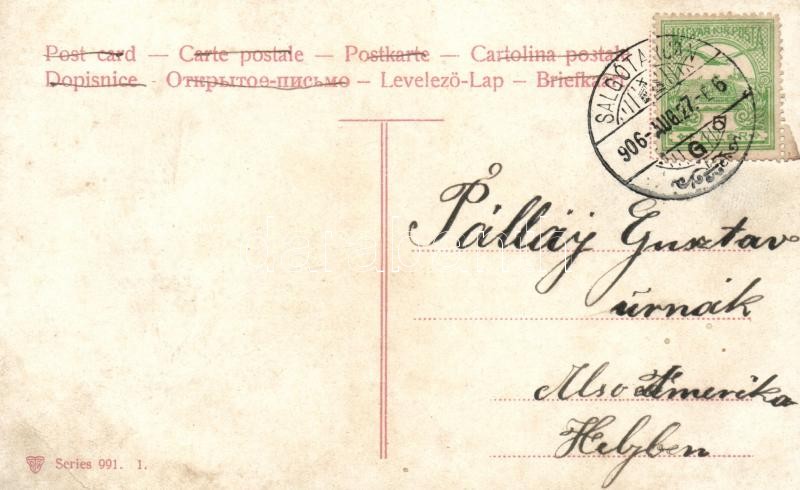 Post card — Carte postale — Postkarte — Cartolina postale
Dopisnice — Открытое-письмо — Levelezö-Lap — Briefka
MAGYAR KIR. POSTA
SALGÓTARJÁN
906 AUG. 27
Pálláy Gusztav
úrnák
Also Ámerika
Helyben
Series 991. 1.